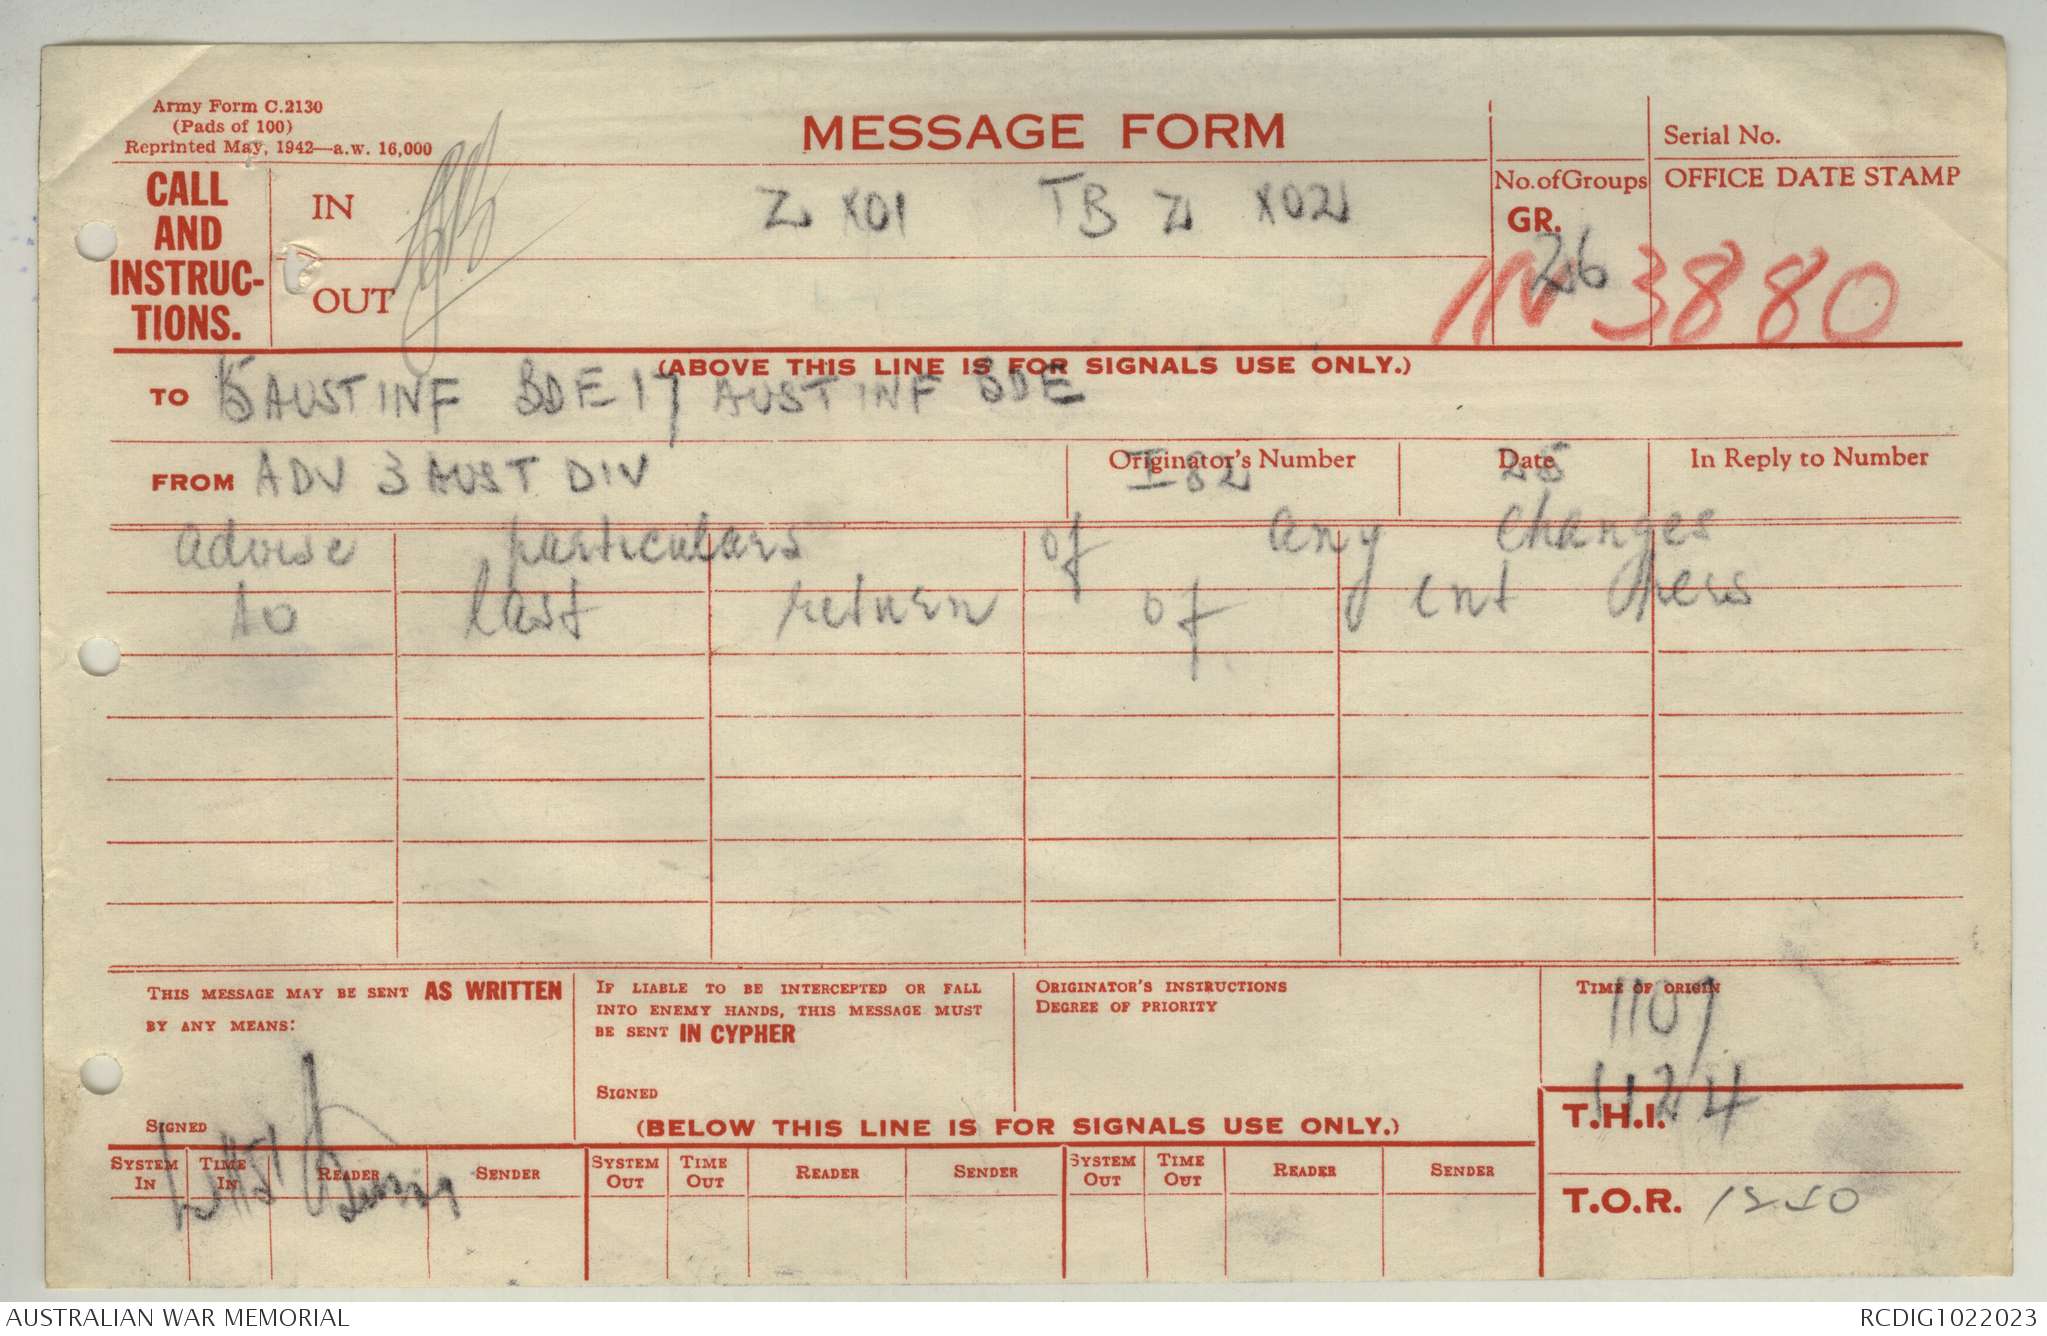 Army Form C.2130
(Pads of 100)
Reprinted May, 1942—a.w. 16,000
MESSAGE FORM
Serial No.
CALL
AND
INSTRUC-
TIONS.
IN
Z X01 TB Z X02
OUT
No. of Groups
GR.
26
OFFICE DATE STAMP
IN 3880
(ABOVE THIS LINE IS FOR SIGNALS USE ONLY.)
TO 15 AUST INF BDE 17 AUST INF BDE
FROM ADV 3 AUST DIV
Originator's Number
I 82
Date
25
In Reply to Number
advise particulars of any changes
to last return of int pers
THIS MESSAGE MAY BE SENT AS WRITTEN
BY ANY MEANS:
SIGNED
IF LIABLE TO BE INTERCEPTED OR FALL
INTO ENEMY HANDS, THIS MESSAGE MUST
BE SENT IN CYPHER
SIGNED
ORIGINATOR'S INSTRUCTIONS
DEGREE OF PRIORITY
TIME OF ORIGIN
1107
(BELOW THIS LINE IS FOR SIGNALS USE ONLY.)
T.H.I. 1124
SYSTEM IN TIME IN READER SENDER SYSTEM OUT TIME OUT READER SENDER SYSTEM OUT TIME OUT READER SENDER
T.O.R. 1250
AUSTRALIAN WAR MEMORIAL
RCDIG1022023